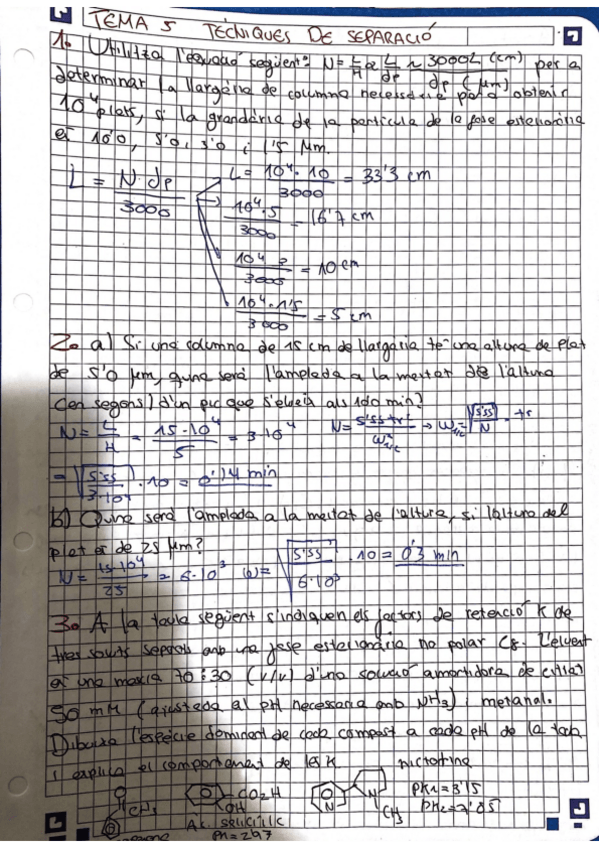 TEMA 5 TÈCNIQUES DE SEPARACIÓ
1. Utilitza l'equació següent: N = L/H ≈ L/dp ≈ 3000L (cm) / dp (μm) per a
determinar la llargària de columna necessària per a obtenir
10⁴ plats, si la grandària de la partícula de la fase estacionària
és 10'0, 5'0, 3'0 i 1'5 μm.
L = N·dp / 3000
L = 10⁴·10 / 3000 = 33'3 cm
10⁴·5 / 3000 = 16'7 cm
10⁴·3 / 3000 = 10 cm
10⁴·1'5 / 3000 = 5 cm
2. a) Si una columna de 15 cm de llargària té una altura de plat
de 5'0 μm, quina serà l'amplada a la meitat de l'altura
(en segons) d'un pic que s'elueix als 10'0 min?
N = L/H = 15·10⁴ / 5 = 3·10⁴ N = 5'55 tr² / w²1/2 → w1/2 = √(5'55 / N) · tr
= √(5'55 / 3·10⁴) · 10 = 0'14 min
b) Quina serà l'amplada a la meitat de l'altura, si l'altura del
plat és de 25 μm?
N = 15·10⁴ / 25 = 6·10³ w = √(5'55 / 6·10³) · 10 = 0'3 min
3. A la taula següent s'indiquen els factors de retenció K de
tres soluts separats amb una fase estacionària no polar C8. L'eluent
és una mescla 70:30 (v/v) d'una solució amortidora de citrat
50 mM (ajustada al pH necessari amb NH3) i metanol.
Dibuixa l'espècie dominant de cada compost a cada pH de la taula
i explica el comportament de les K
nicotina
O CH3 CO2H OH N N CH3 pK1 = 3'15
pK2 = 7'85
Ac. salicílic
pK = 2'97